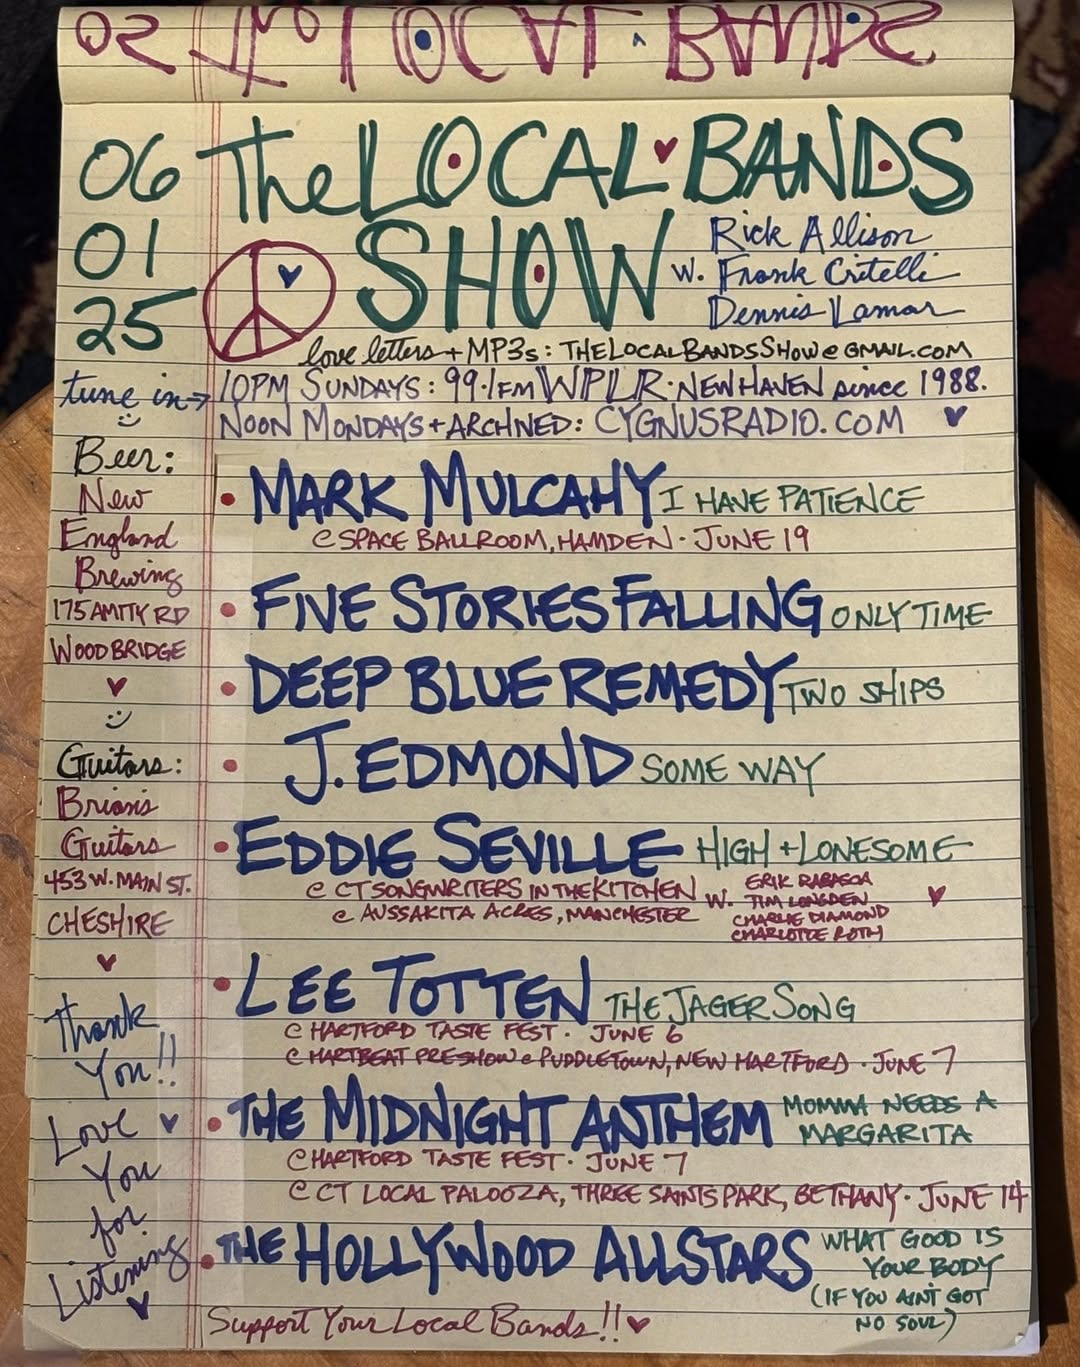 02 The LOCAL BANDS
06
01
25
The LOCAL BANDS
SHOW
Rick Allison
w. Frank Critelli
Dennis Lamar
love letters + MP3s: THELOCALBANDSSHOW@GMAIL.COM
tune in→
10PM SUNDAYS: 99.1FM WPLR·NEW HAVEN since 1988.
NOON MONDAYS + ARCHIVED: CYGNUSRADIO.COM
Beer:
New
England
Brewing
175 AMITY RD
WOODBRIDGE
Guitars:
Brian's
Guitars
453 W. MAIN ST.
CHESHIRE
Thank
You!!
Love
You
for
Listening
• MARK MULCAHY I HAVE PATIENCE
@ SPACE BALLROOM, HAMDEN · JUNE 19
• FIVE STORIES FALLING ONLY TIME
• DEEP BLUE REMEDY TWO SHIPS
• J. EDMOND SOME WAY
• EDDIE SEVILLE HIGH + LONESOME
@ CT SONGWRITERS IN THE KITCHEN w.
@ AUSSAKITA ACRES, MANCHESTER
ERIK RABASCA
TIM LONGDEN
CHARLIE DIAMOND
CHARLOTTE ROTH
• LEE TOTTEN THE JAGER SONG
@ HARTFORD TASTE FEST · JUNE 6
@ HARTBEAT PRESHOW @ PUDDLETOWN, NEW HARTFORD · JUNE 7
• THE MIDNIGHT ANTHEM MOMMA NEEDS A
MARGARITA
@ HARTFORD TASTE FEST · JUNE 7
@ CT LOCAL PALOOZA, THREE SAINTS PARK, BETHANY · JUNE 14
• THE HOLLYWOOD ALLSTARS WHAT GOOD IS
YOUR BODY
(IF YOU AIN'T GOT
NO SOUL)
Support Your Local Bands!!